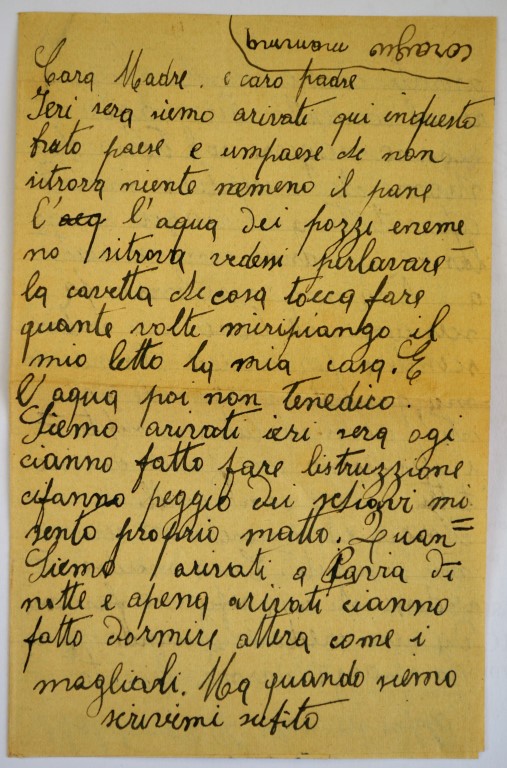 coraggio mamma
Cara Madre. e caro padre
Ieri sera siemo arivati qui inquesto
bruto paese e umpaese che non
sitrova niente nemeno il pane
C'acq l'aqua dei pozzi eneme
no sitrova vedesi perlavare
la cavetta checosa tocca fare
quante volte miripiango il
mio letto la mia casa. E
l'aqua poi non tenedico.
Siemo arivati ieri sera ogi
cianno fatto fare listruzzione
cifanno peggio dei schiavi mi
sento proprio matto. Quan=
Siemo arivati a Pavia di
notte e apena arivati cianno
fatto dormire attera come i
magliali. Ma quando siemo
scrivimi subito